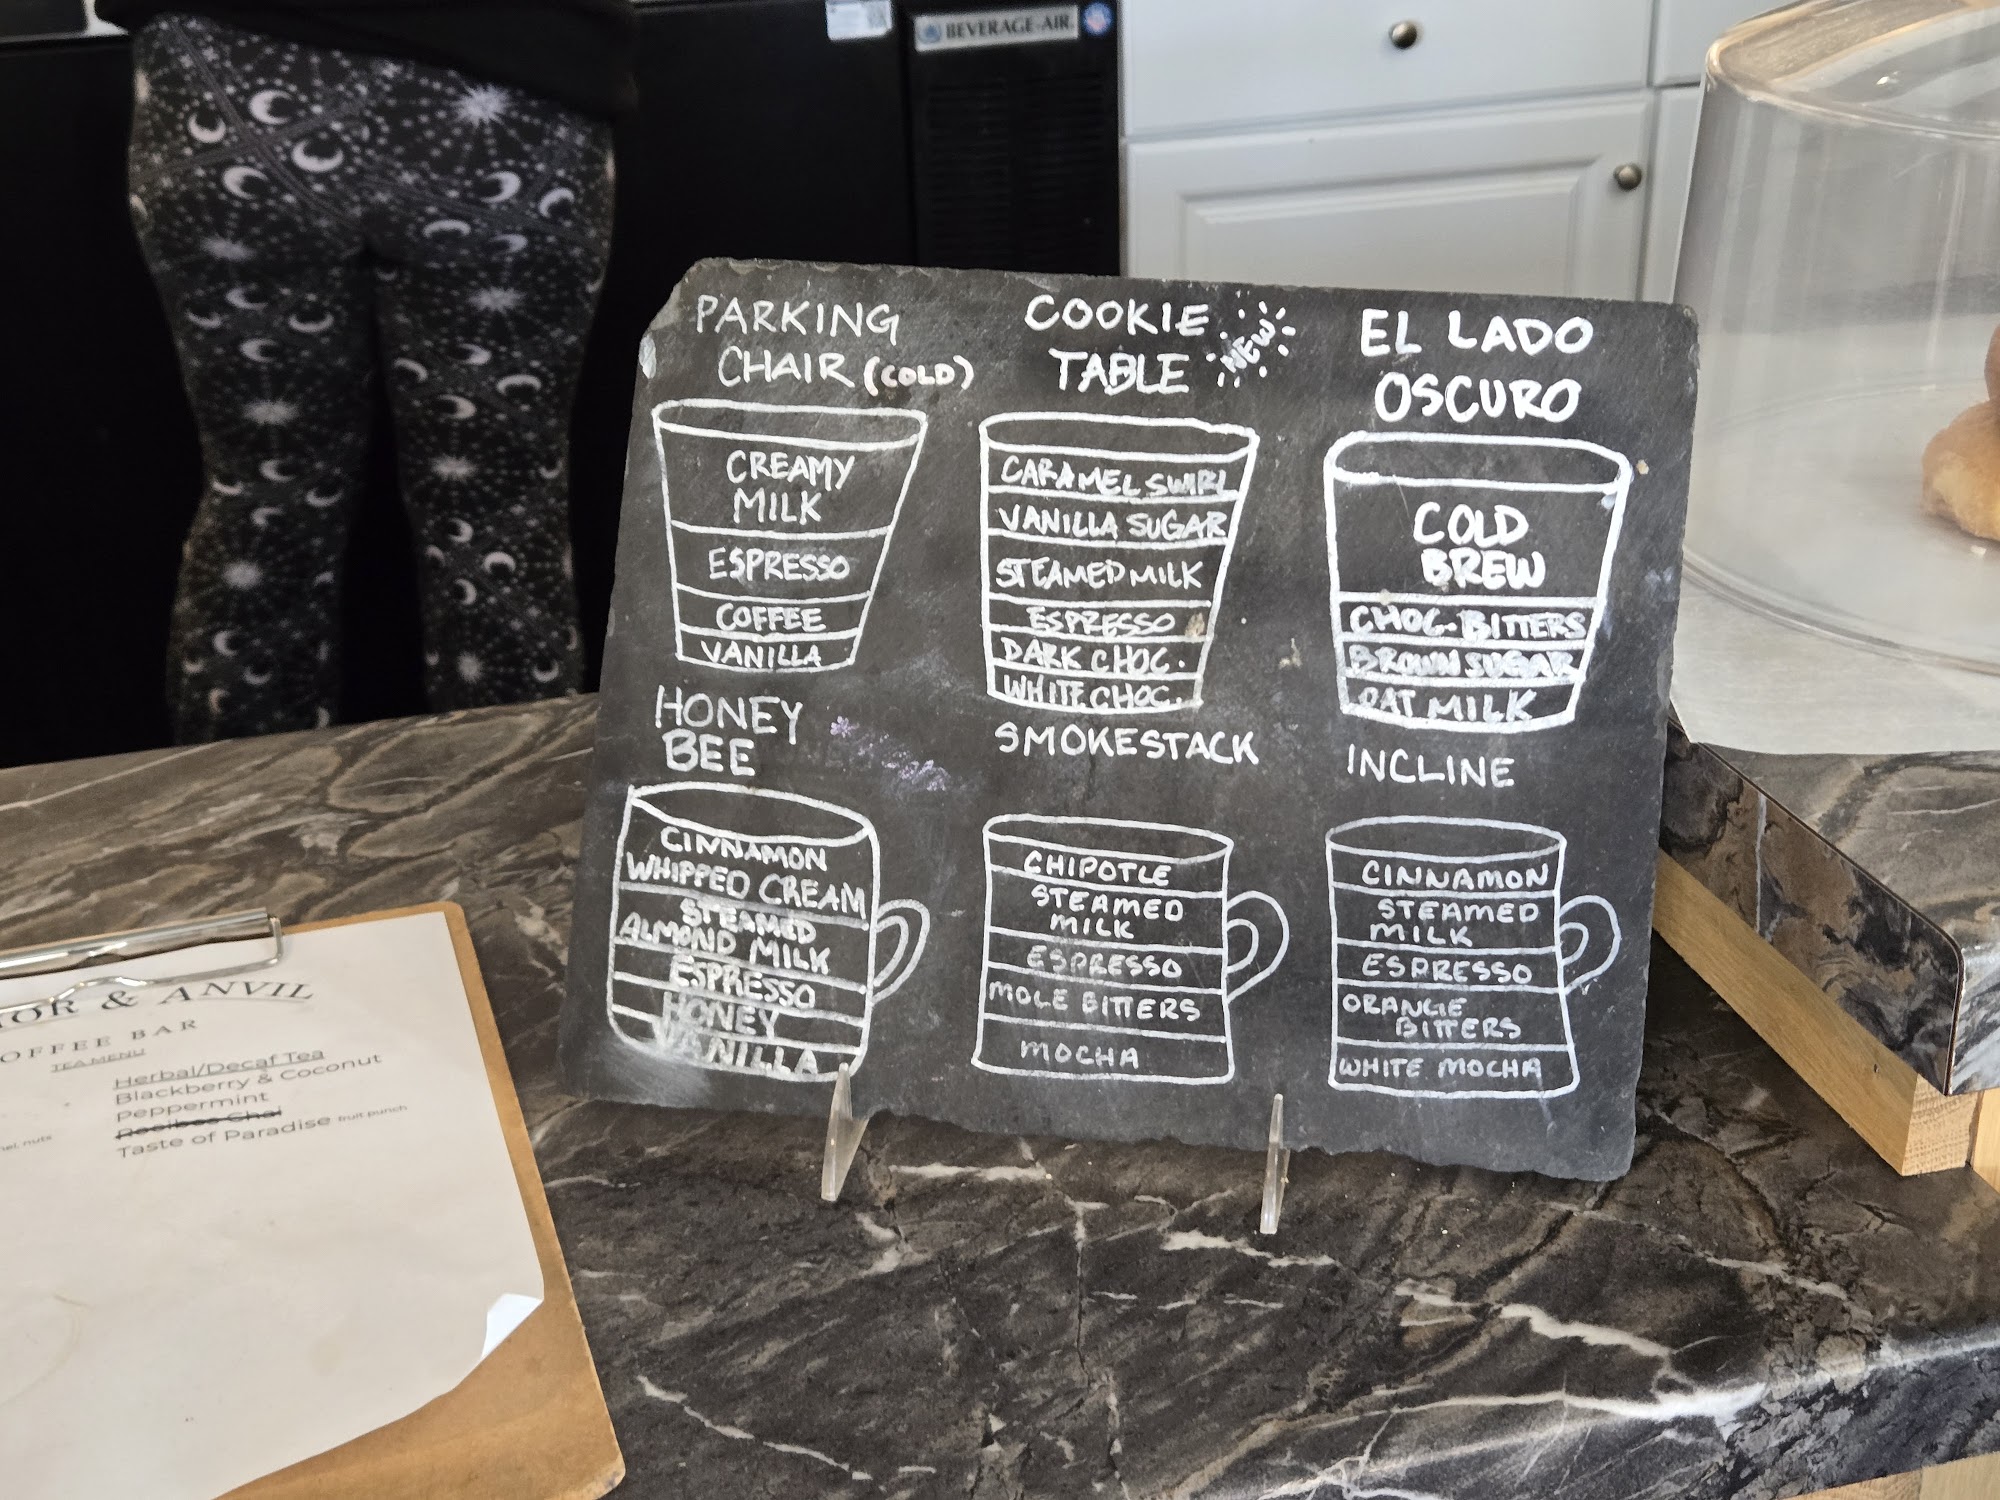 BEVERAGE-AIR
PARKING
CHAIR (COLD)
CREAMY
MILK
ESPRESSO
COFFEE
VANILLA
COOKIE
TABLE
NEW
CARAMEL SWIRL
VANILLA SUGAR
STEAMED MILK
ESPRESSO
DARK CHOC.
WHITE CHOC.
EL LADO
OSCURO
COLD
BREW
CHOC. BITTERS
BROWN SUGAR
OAT MILK
HONEY
BEE
CINNAMON
WHIPPED CREAM
STEAMED
ALMOND MILK
ESPRESSO
HONEY
VANILLA
SMOKESTACK
CHIPOTLE
STEAMED
MILK
ESPRESSO
MOLE BITTERS
MOCHA
INCLINE
CINNAMON
STEAMED
MILK
ESPRESSO
ORANGE
BITTERS
WHITE MOCHA
& ANVIL
OFFEE BAR
TEA MENU
Herbal/Decaf Tea
Blackberry & Coconut
Peppermint
Rooibos Chai
Taste of Paradise fruit punch
nuts